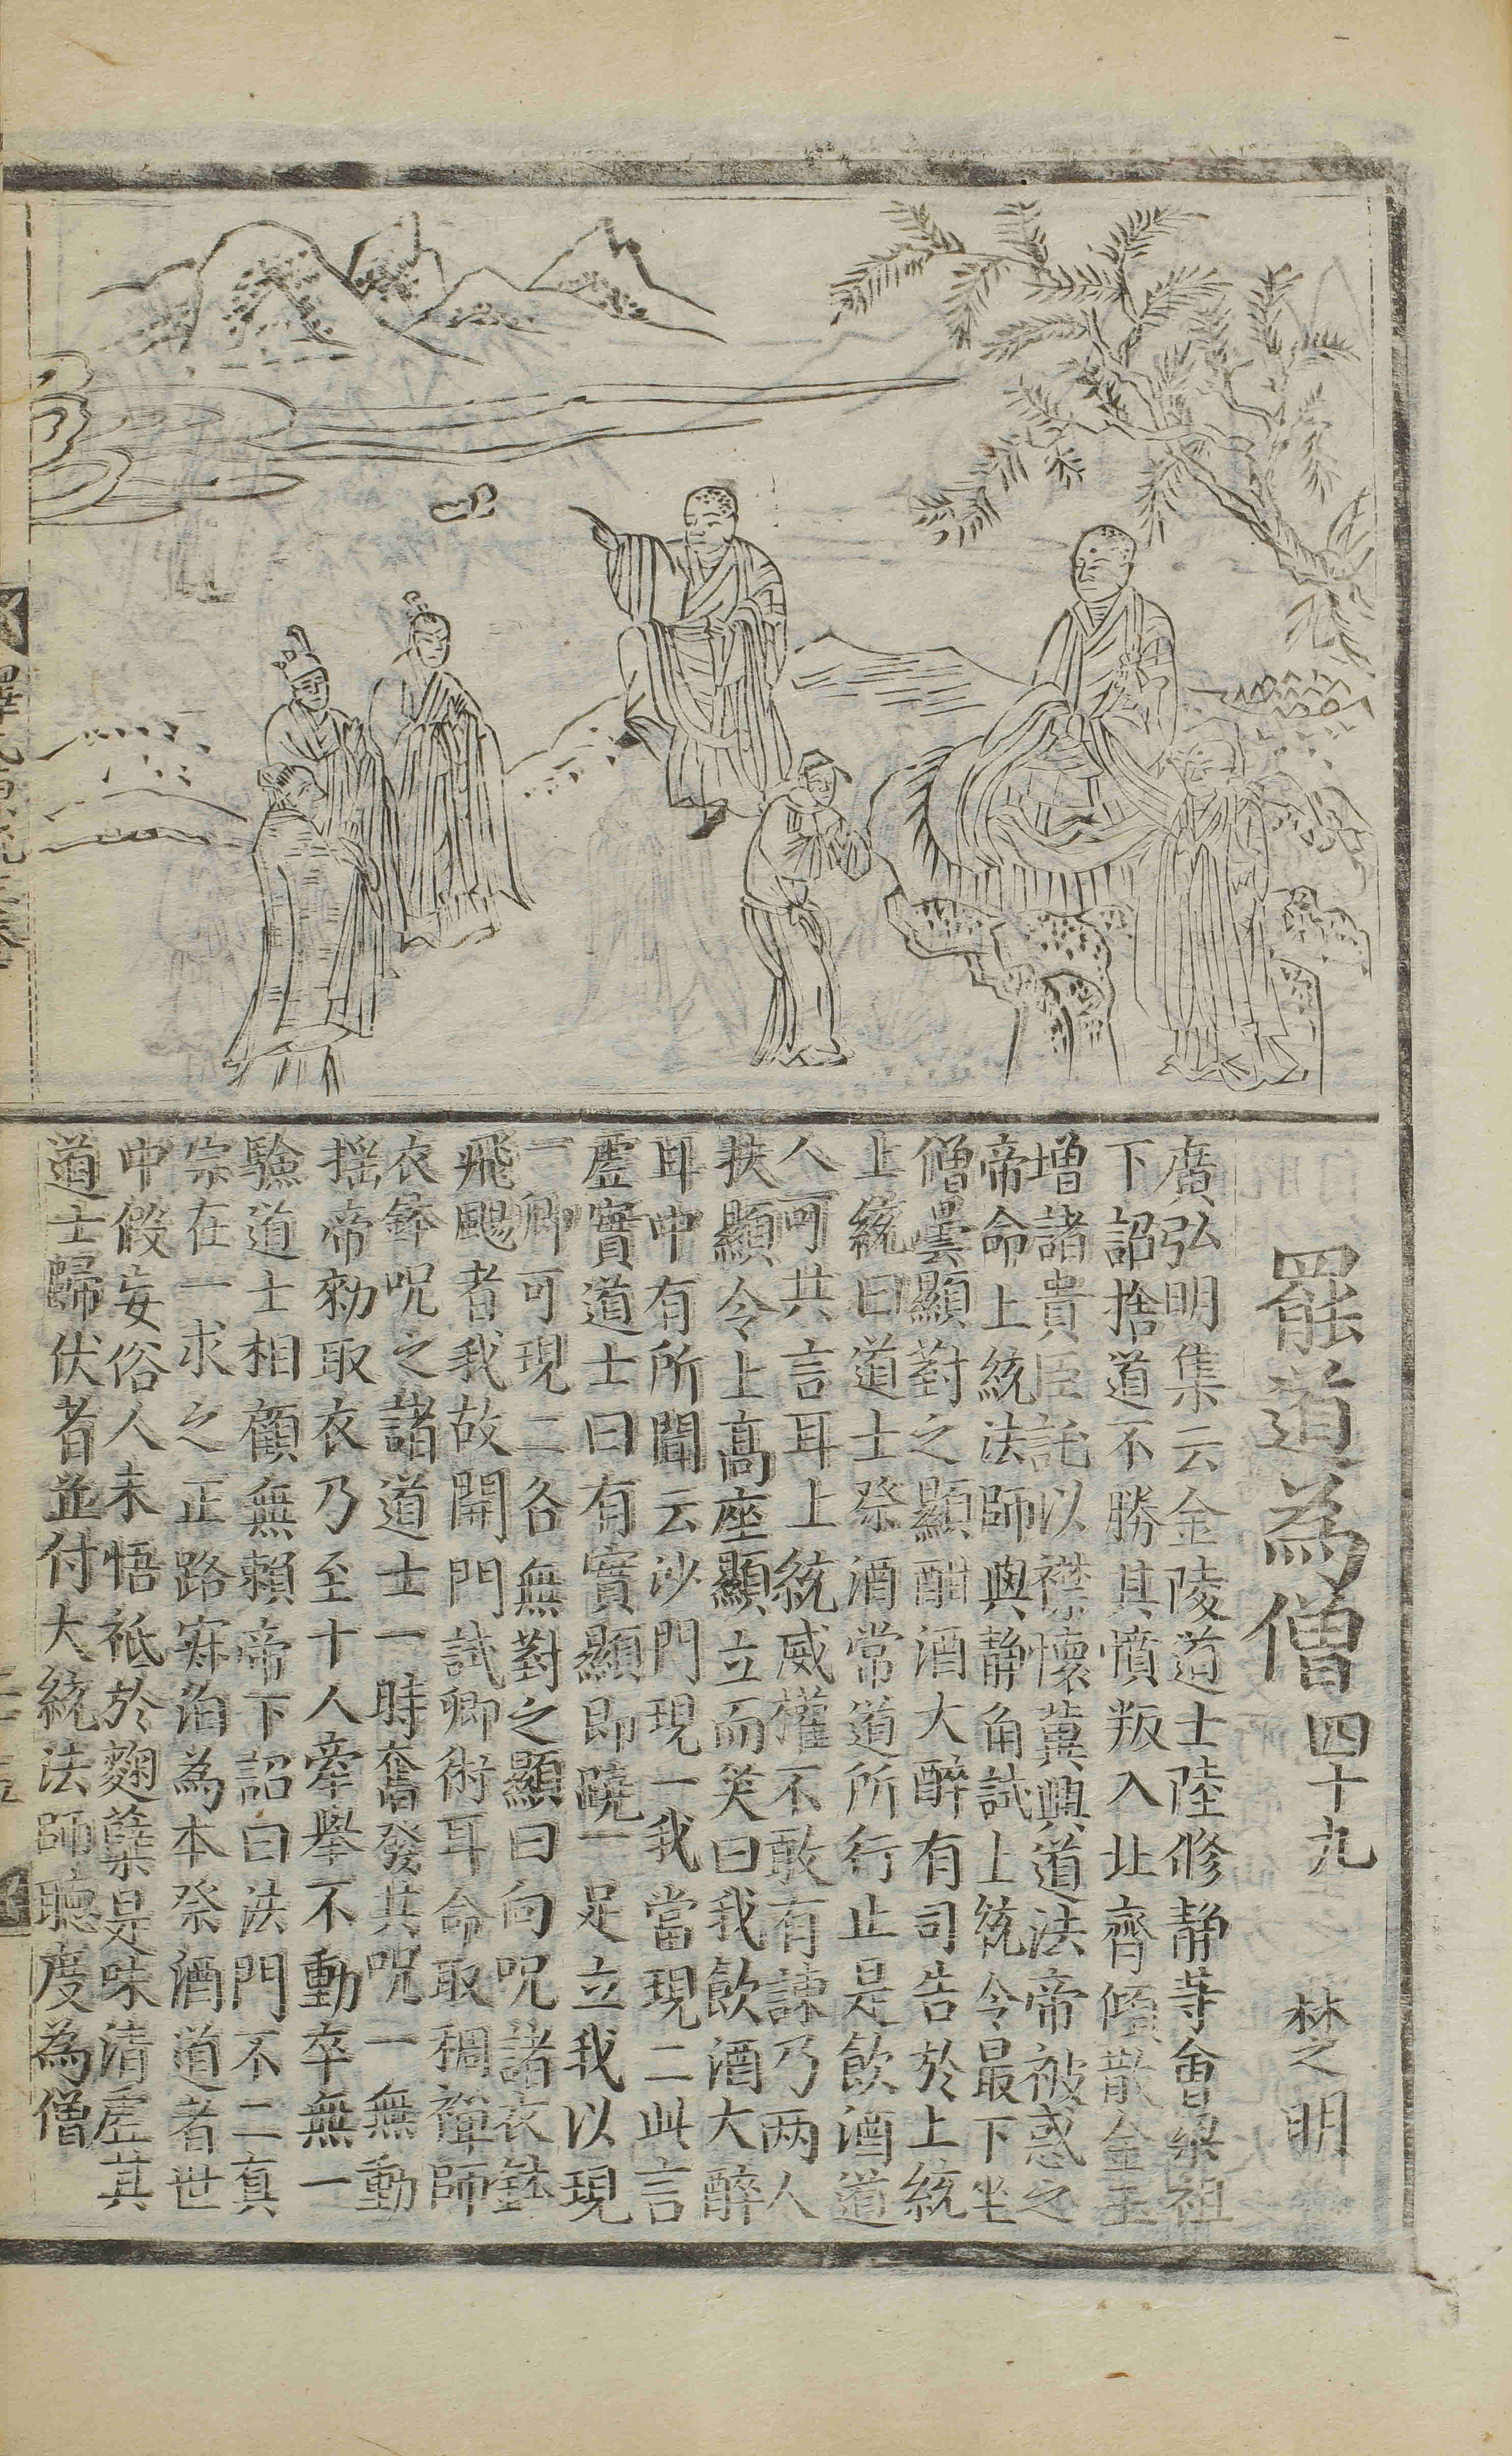 罷道為僧 四十九 林之明
廣弘明集云金陵道士陸修靜等會梁祖
下詔捨道不勝其憤叛入北齊傾散金玉
增諸貴臣託以襟懷冀興道法帝被惑之
帝命上統法師與靜角試上統令最下坐
僧曇顯對之顯酣酒大醉有司告於上統
上統曰道士祭酒常道所行止是飲酒道
人可共言耳上統威權不敢有諫乃两人
扶顯令上高座顯立而笑曰我飲酒大醉
耳中有所聞云沙門現一我當現二此言
虛實道士曰有實顯即蹺一足立我以現
一卿可現二各無對之顯曰向呪諸衣鉢
飛颺者我故開門試卿術耳命取稠禪師
衣鉢呪之諸道士一時奮發共呪一無動
揺帝勑取衣乃至十人牽舉不動卒無一
驗道士相顧無賴帝下詔曰法門不二真
宗在一求之正路寂泊為本祭酒道者世
中假妄俗人未悟祗於麴蘖是味清虛其
道士歸伏者並付大統法師聽度為僧